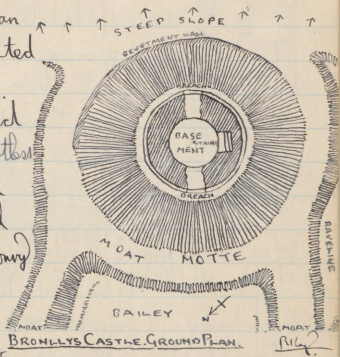 STEEP SLOPE
REVETMENT WALL
BREACH
BASE
MENT
STAIRS
BREACH
MOAT
MOTTE
RAVELINE
BAILEY
N
MOAT
MOAT
BRONLLYS CASTLE. GROUND PLAN.